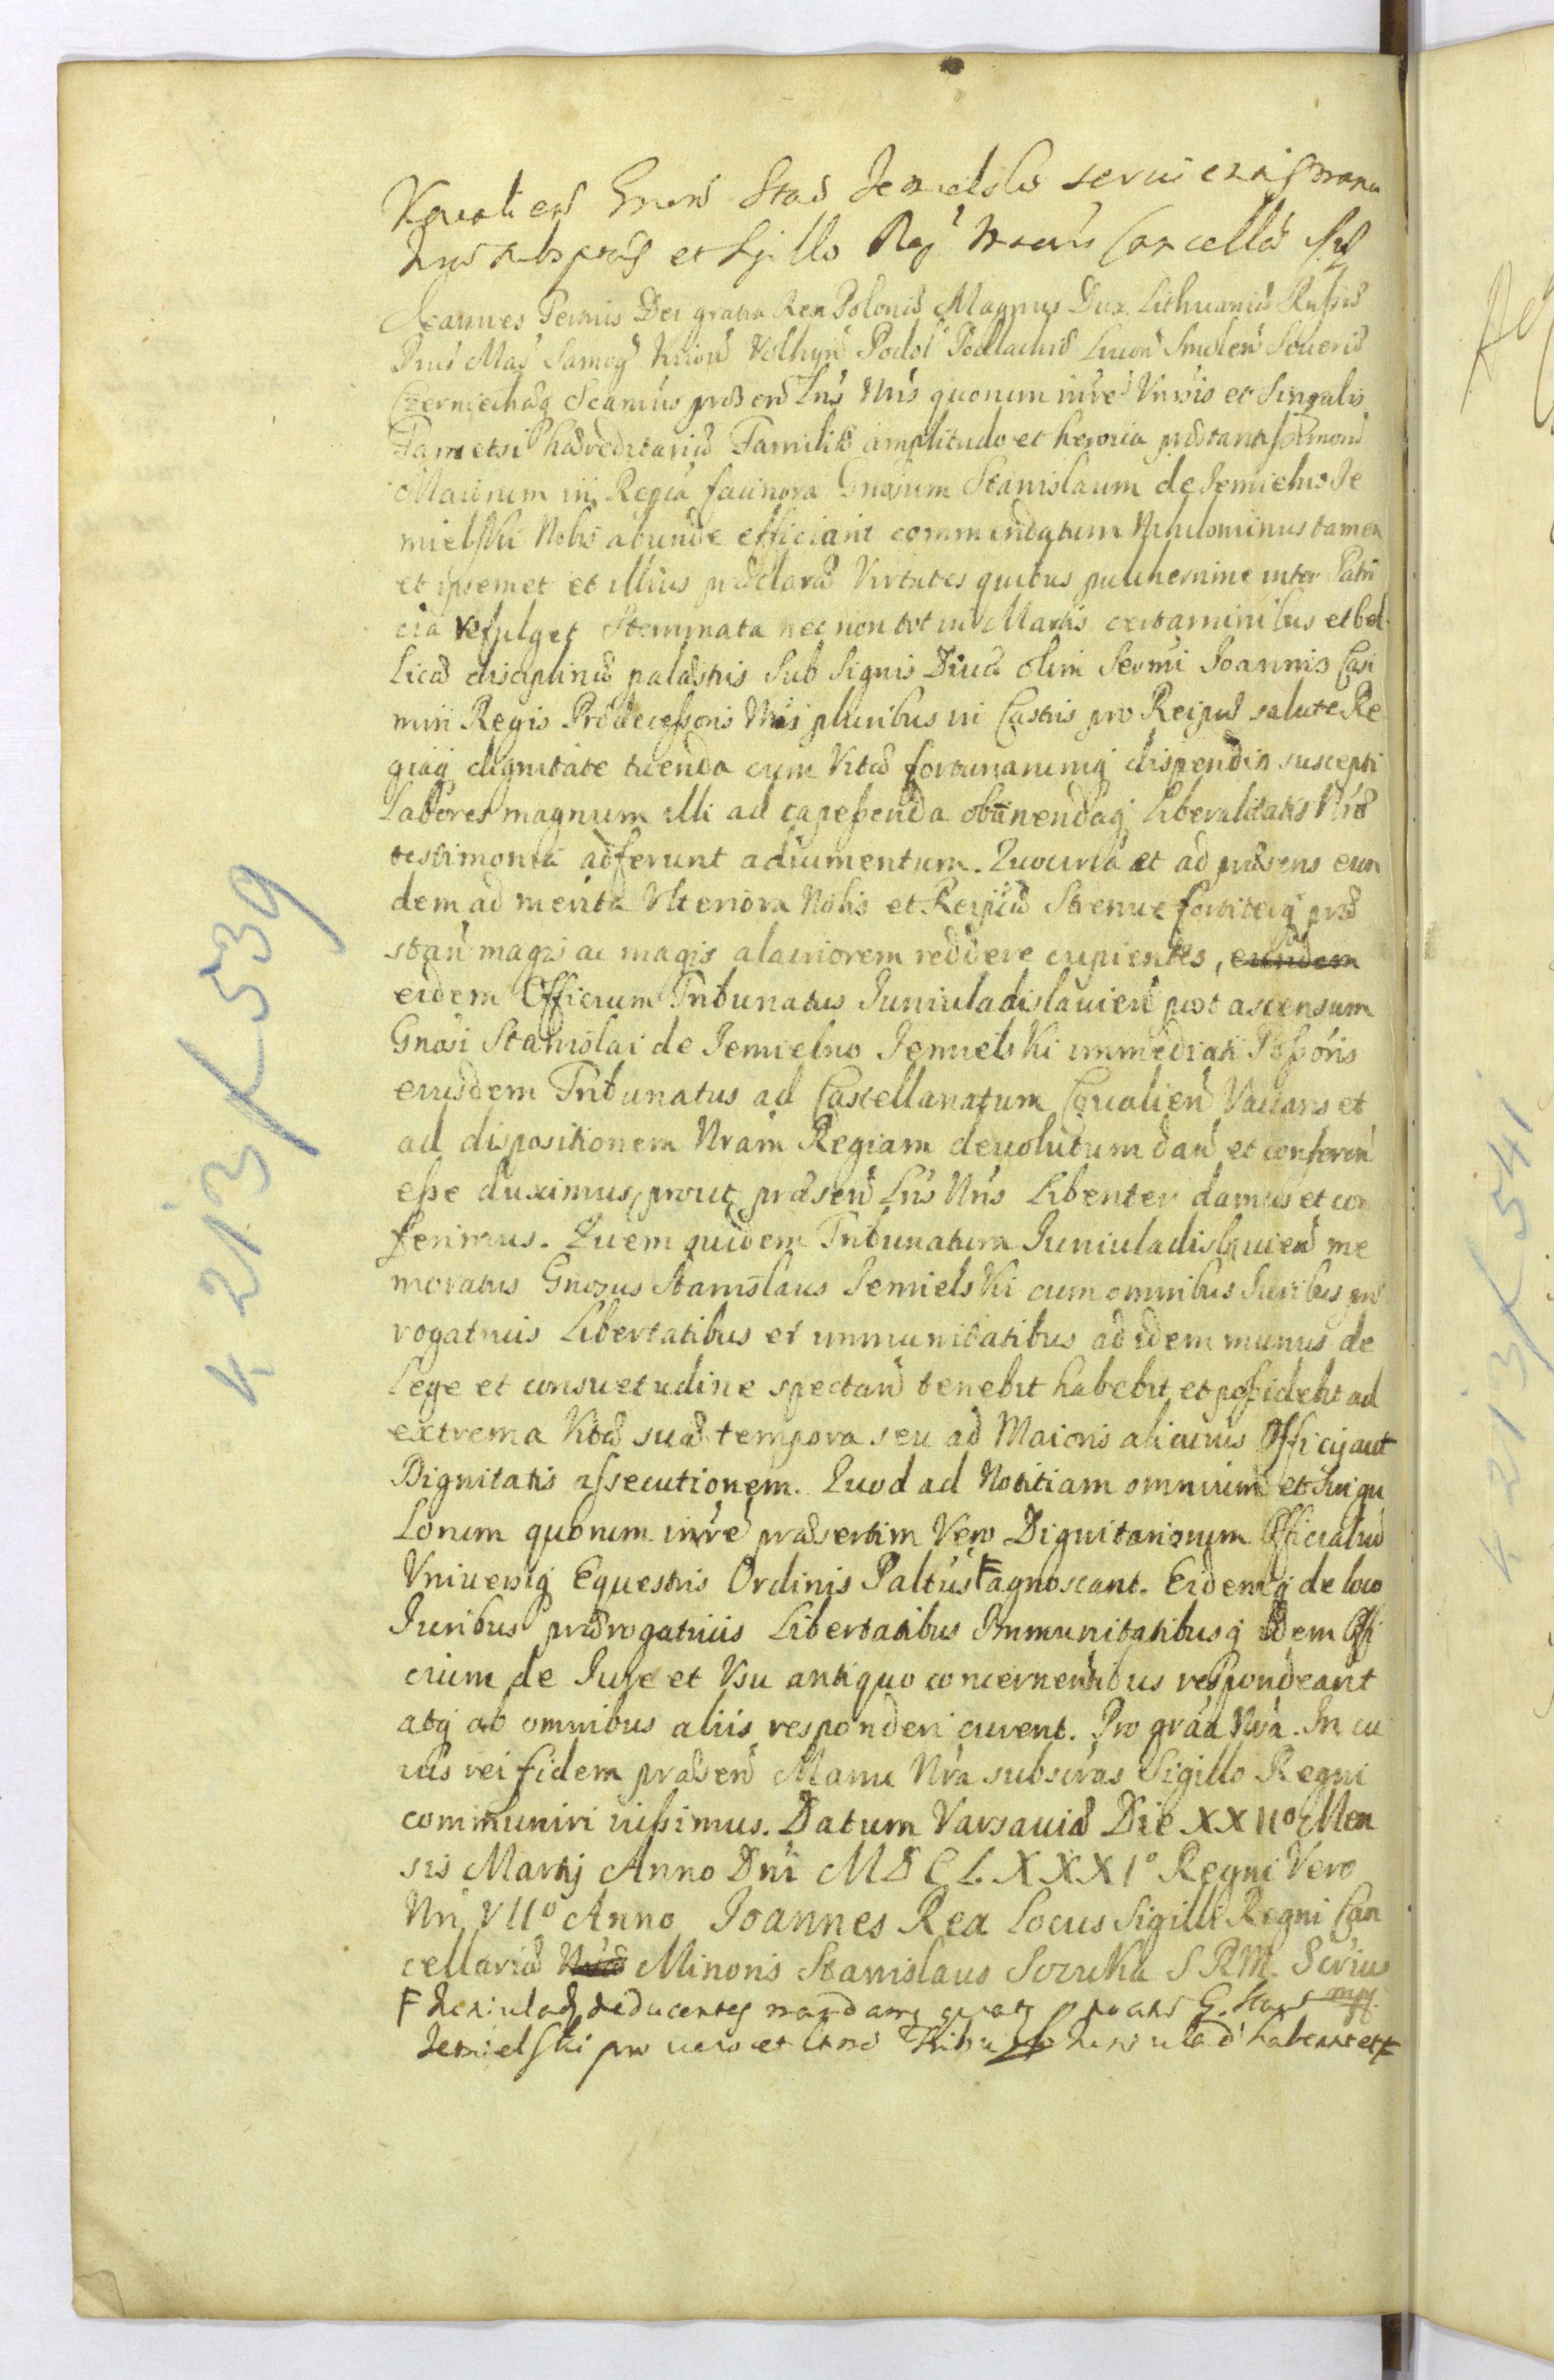 Stad Jemielski
et Sgillo Regĩ
Joannes Tertius Dei gratia Rex Poloniæ Magnus Dux Lithuaniæ Russiæ
Prus Maz Samog Kiiou Volhyn Podol Podlachiæ Liuon Smolen Seueriæ
Czerniechoq Scimus præsen Lris Nris quorum inre Vnivis et Singulis
Tametsi hæreditariæ Familiæ amplitudo et heroica
Maiorum in Regia facinora Gnosum Stanislaum de Jemielno Je
mielski Nobis abunde efficiant commendatum Nihilominus tamen
et ipsemet et illius præclaræ Virtutes quibus pulcherrime inter Patri
cia refulget Stemmata nec non tot in Martis certaminibus et bel
licæ disciplinæ palæstris Sub Signis Diui olim Sermi Joannis Casi
miri Regis Prædecessoris Nri pluribus in Castris pro Reipuæ salute Re
giaq dignitate tuenda cum Vitæ fortunarumq dispendio suscepti
Labores magnum illi ad capessenda obtinendaq Liberalitatis Nræ
testimonia adferunt adiumentum. Quocirca et ad præsens eun
dem ad merita Vlteriora Nobis et Reipuæ Strenue fortiterq præ
stan magis ac magis alacriorem reddere cupientes, eundem
eidem Officium Tribunatus Juniuladislauien post ascensum
Gnosi Stanislai de Jemielno Jemielski immediati Possoris
eiusdem Tribunatus ad Castellanatum Coualien Vacans et
ad dispositionem Nram Regiam deuolutum dan et conferen
esse duximus, prout præsen Lris Nris Libenter damus et con
ferimus. Quem quidem Tribunatum Juniuladislauien me
moratus Gnosus Stanislaus Jemielski cum omnibus Juribus præ
rogatiuis Libertatibus et immunitatibus ad idem munus de
Lege et consuetudine spectan tenebit habebit et possidebit ad
extrema Vitæ suæ tempora seu ad Maioris alicuius Officij aut
Dignitatis assecutionem. Quod ad Notitiam omnium et Singu
Lorum quorum inre præsertim Vero Dignitariorum Officialiu
Vniuersiq Equestris Ordinis Paltus F agnoscant. Eidemq de loco
Juribus prærogatiuis Libertatibus Immunitatibusq idem Offi
cium de Jure et Vsu antiquo concernentibus respondeant
atq ab omnibus aliis responderi curent. Pro gráa Nra. In cu
ius rei fidem præsen Manu Nra subscras Sigillo Regni
communiri iussimus. Datum Varsauiæ Die XXIIo Men
sis Martij Anno Dni MDCLXXXI° Regni Vero
Nri VII° Anno Joannes Rex Locus Sigilli Regni Can
cellariæ Nræ Minoris Stanislaus Szczuka S R M. Scrius
F Juniulad deducentes mandamus quatq G. Stans mpp
Jemielski pro uero et Ltmo Tribu Juniulad habeant et F
K 213 K 539
K 213 K 541